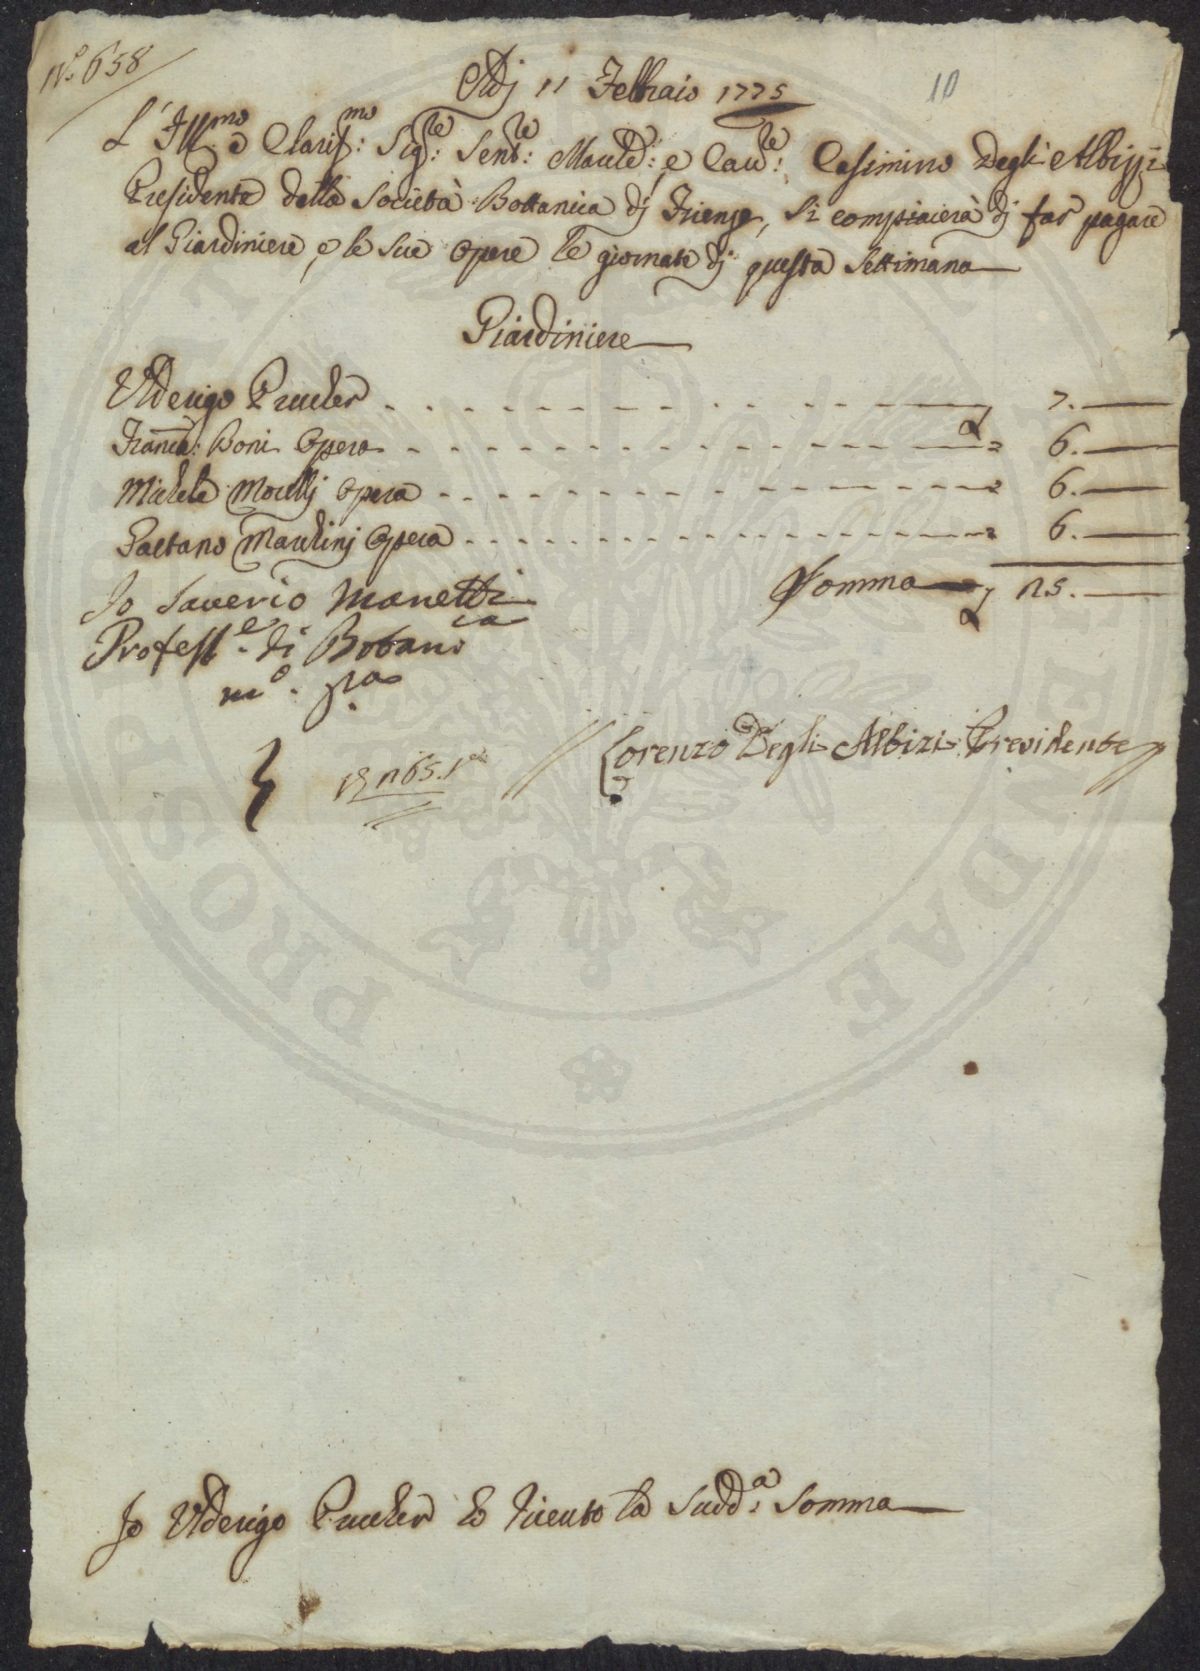 N.o 658
10
Adj 11 Febbraio 1775
L'Ill:mo e Clariss:mo Sig:re Sen:re March: e Cau:re Casimirro Degli Albizzi
Presidente della Società Bottanica dj Firenze, si compiacierà dj far pagare
al Giardiniere, e le sue Opere le giornate dj questa Settimana
Giardiniere
Ulderigo Prucker 7.
Franco: Boni Opera 6.
Michele Morelli Opera 6.
Gaetano Marchinj Opera 6.
Somma 25.
Io Saverio Manetti
Profess.e di Botanica
m.o p.a
Lorenzo Degli Albizi Presidente
Io Ulderigo Prucker ho riceuto la Sudd:a Somma
PROSPI